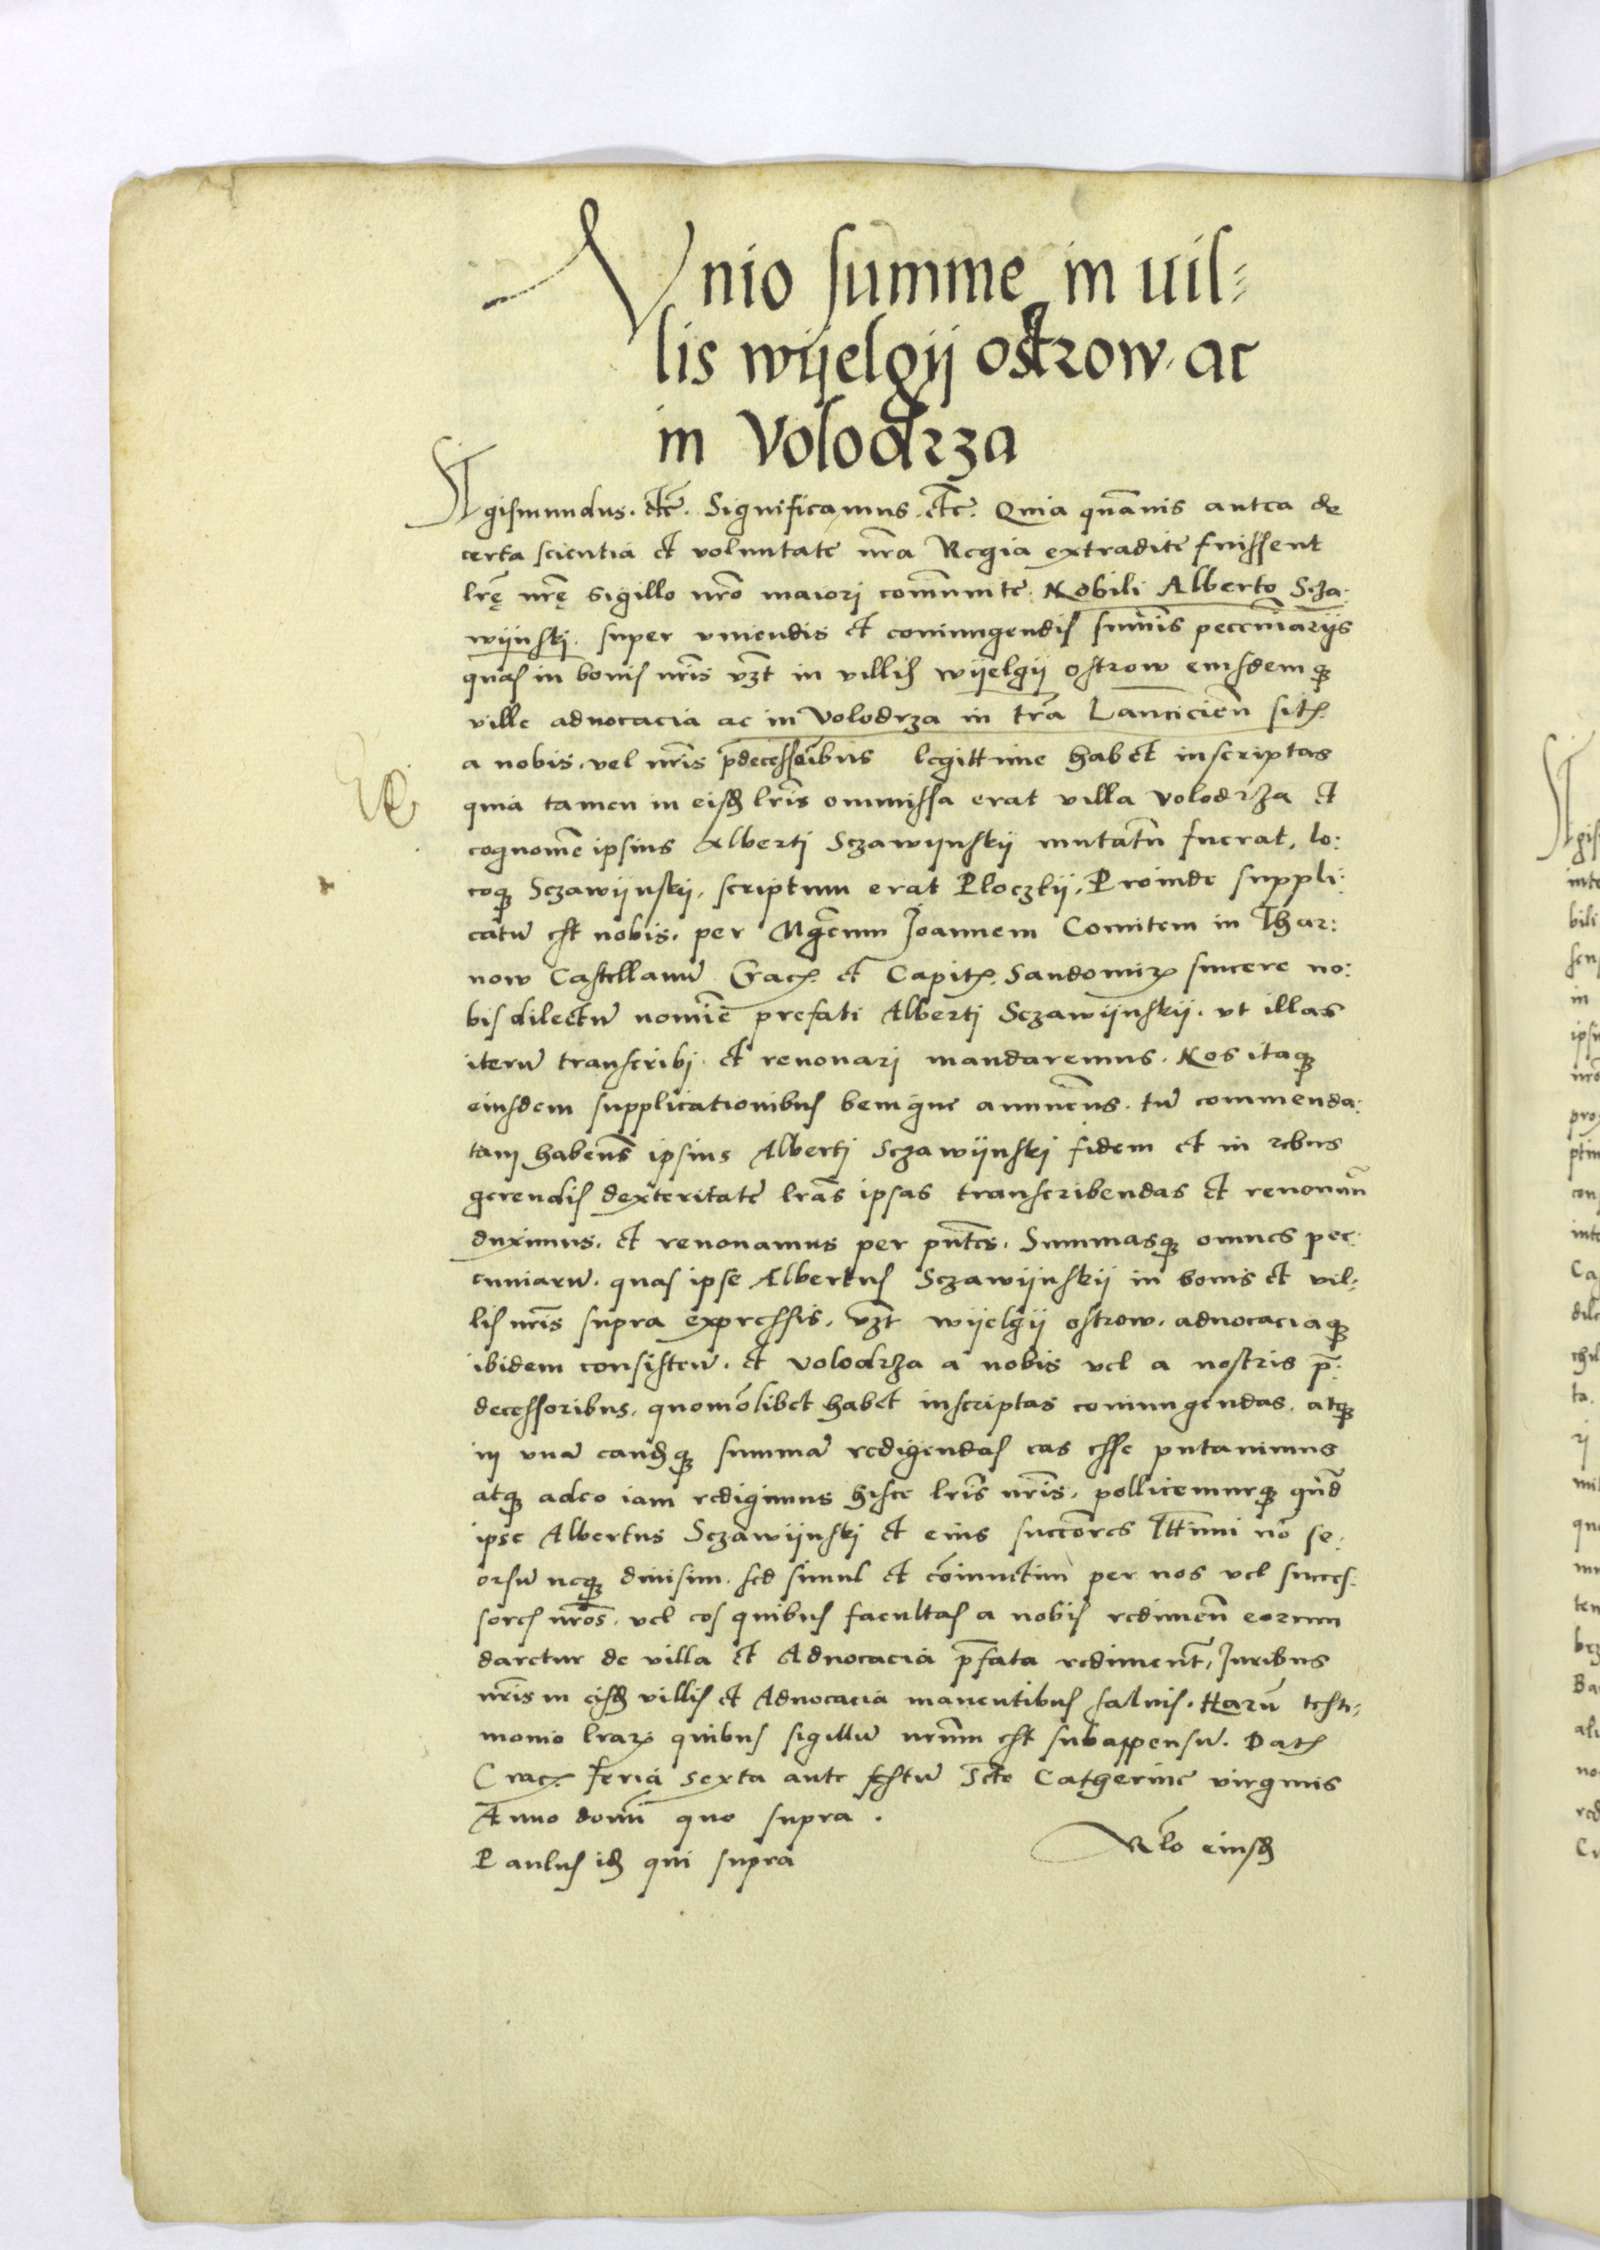 Vnio summe in uil=
lis wijelgij ostrow ac
in Volodrza
Sigismundus. etc̃. Significamus. etc̃. Quia quãuis antea de
certa scientia et voluntate nr̃a Regia extradite fuissent
lr̃ę nr̃ę sigillo nr̃o maiori com̃unite Nobili Alberto Scza:
wijnskj. super vniendis et coniungendis sum̃is peccuniarijs
quas in bonis nr̃is vz̃t in villis wijelgij ostrow eiusdemq₃
ville aduocacia ac in Volodrza in tr̃a Lancicien̄ sitꝭ
a nobis. vel nr̃is p̄decessor̃ibus legittime habet inscriptas
quia tamen in eisd̃ lr̃is ommissa erat villa volodrza et
cognom̃e ipsius Albertj Sczawijnskij mutatũ fuerat, lo:
coq₃ Sczawijnskij, scriptum erat Ploczkij. Proinde suppli:
catũ est nobis. per Mgc̃um Joannem Comitem in Thar:
now Castellanũ Cracꝭ. et Capitꝭ. Sandomirꝭ sincere no:
bis dilectũ nomĩe prefati Albertj Sczawijnskij. vt illas
iterũ transcribj et renouarj mandaremus. Nos itaq₃
eiusdem supplicationibus benigne annuen̄s. tũ commenda:
tam haben̄s ipsius Albertj Sczawijnskj fidem et in rebus
gerendis dexteritatẽ lr̃as ipsas transcribendas et renouan̄
duximus. et renouamus per pñtes. Summasq₃ omnes pec:
cuniarũ. quas ipse Albertus Sczawijnskij in bonis et vil:
lis nr̃is supra expressis. vz̃t wijelgij ostrow. aduocaciaq₃
ibidem consisteñ. et volodrza a nobis vel a nostris p̄:
decessoribus. quomõlibet habet inscriptas coniungendas. atq₃
in vnã eand̃q₃ summã redigendas eas esse putauimus
atq₃ adeo iam redigimus hisce lr̃is nr̃is. pollicemurq₃ qũd
ipse Albertus Sczawijnskj et eius succõres l̃ttimi nõ se:
orsũ neq₃ diuisim. sed simul et cõiunctim per nos vel succes:
sores nr̃os. vel eos quibus facultas a nobis redimen̄ eorum
daretur de villa et Aduocacia p̄fata redimenť. Juribus
nr̃is in eisd̃ villis et Aduocacia manentibus saluis. Harũ testi:
monio lr̃arꝭ quibus sigillũ nr̃um est subappensũ. Datꝭ
Cracꝭ. feria sexta ante festũ Scte Catherine virginis
Anno domĩ quo supra.
Paulus id̃ qui supra
Rl̃o eiusd̃